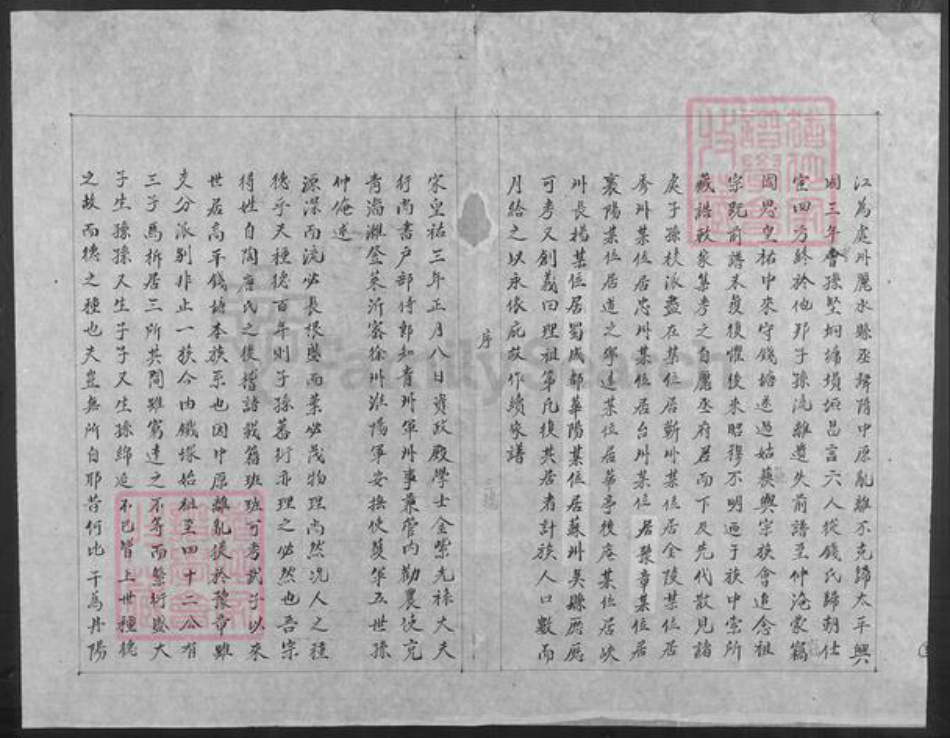 江為處州麗水縣丞歸隋中原亂離不克歸太平興
國三年曾孫堅坰墉塤垣昌言六人從錢氏歸朝仕
宦四方終於他邦子孫流離遺失前譜至仲淹蒙竊
國恩皇祐中來守錢塘遂過姑蘇與宗族會追念祖
宗既前譜未獲復懼後來昭穆不明迺于族中索所
藏誥敕家集考之自麗丞府君而下及先代散見諸
庋子孫枝派盡在某位居蘄州某位居金陵某位居
秀州某位居忠州某位居台州某位居豫章某位居
襄陽某位居道之寧遠某位居華亭後庵某位居峽
州長楊某位居蜀成都華陽某位居蘇州吳縣廨應
可考又創義田理祖第凡復其居者計族人口數而
月給之以永依庇故作續家譜
序
宋皇祐三年正月八日資政殿學士金紫光祿大夫
行尚書戶部侍郎知青州軍州事兼管內勸農使充
青淄濰登萊沂密徐州淮陽軍安撫使護軍五世孫
仲淹述
源深而流必長根盛而葉必茂物理尚然況人之種
德乎夫種德百年則子孫蕃衍亦理之必然也吾宗
得姓自陶唐氏之後稽諸載籍班班可考武子以來
世居高平錢塘本族系也因中原離亂徙於豫章雖
支分派別非止一族今內鐵塚始祖至四十二公有
三子焉析居三所其間雖窮達之不等而繁衍盛大
子生孫孫又生子子又生孫綿延不已皆上世種德
之故而德之種也夫豈無所自耶昔何比干為丹陽
FamilySearch